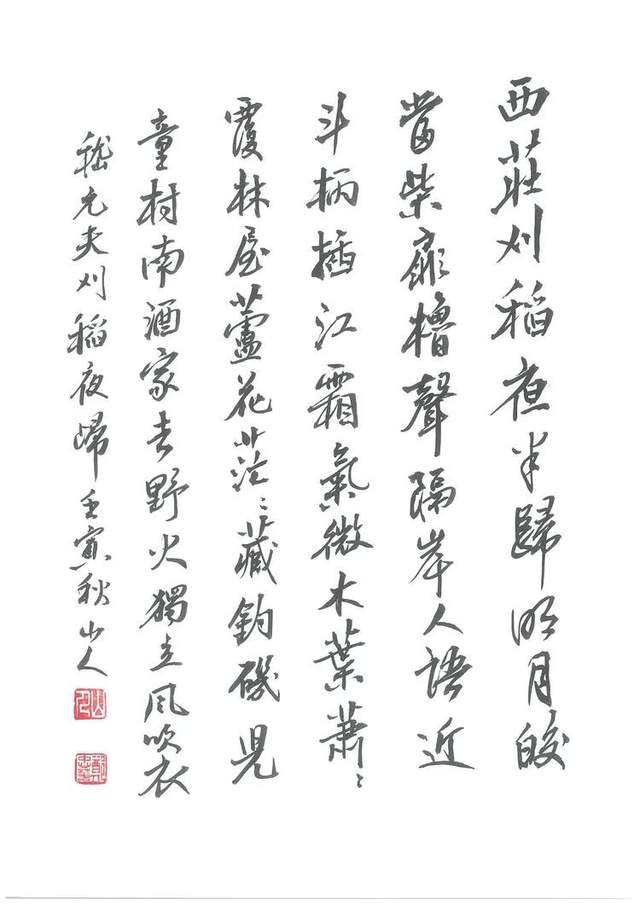 西莊刈稻夜半歸明月皎
當柴扉櫓聲隔岸人語近
斗柄插江霜氣微木葉蕭〻
覆林屋蘆花茫〻藏釣磯兒
童村南酒家去野火獨立風吹衣
嵇元夫刈稻夜歸壬寅秋山人